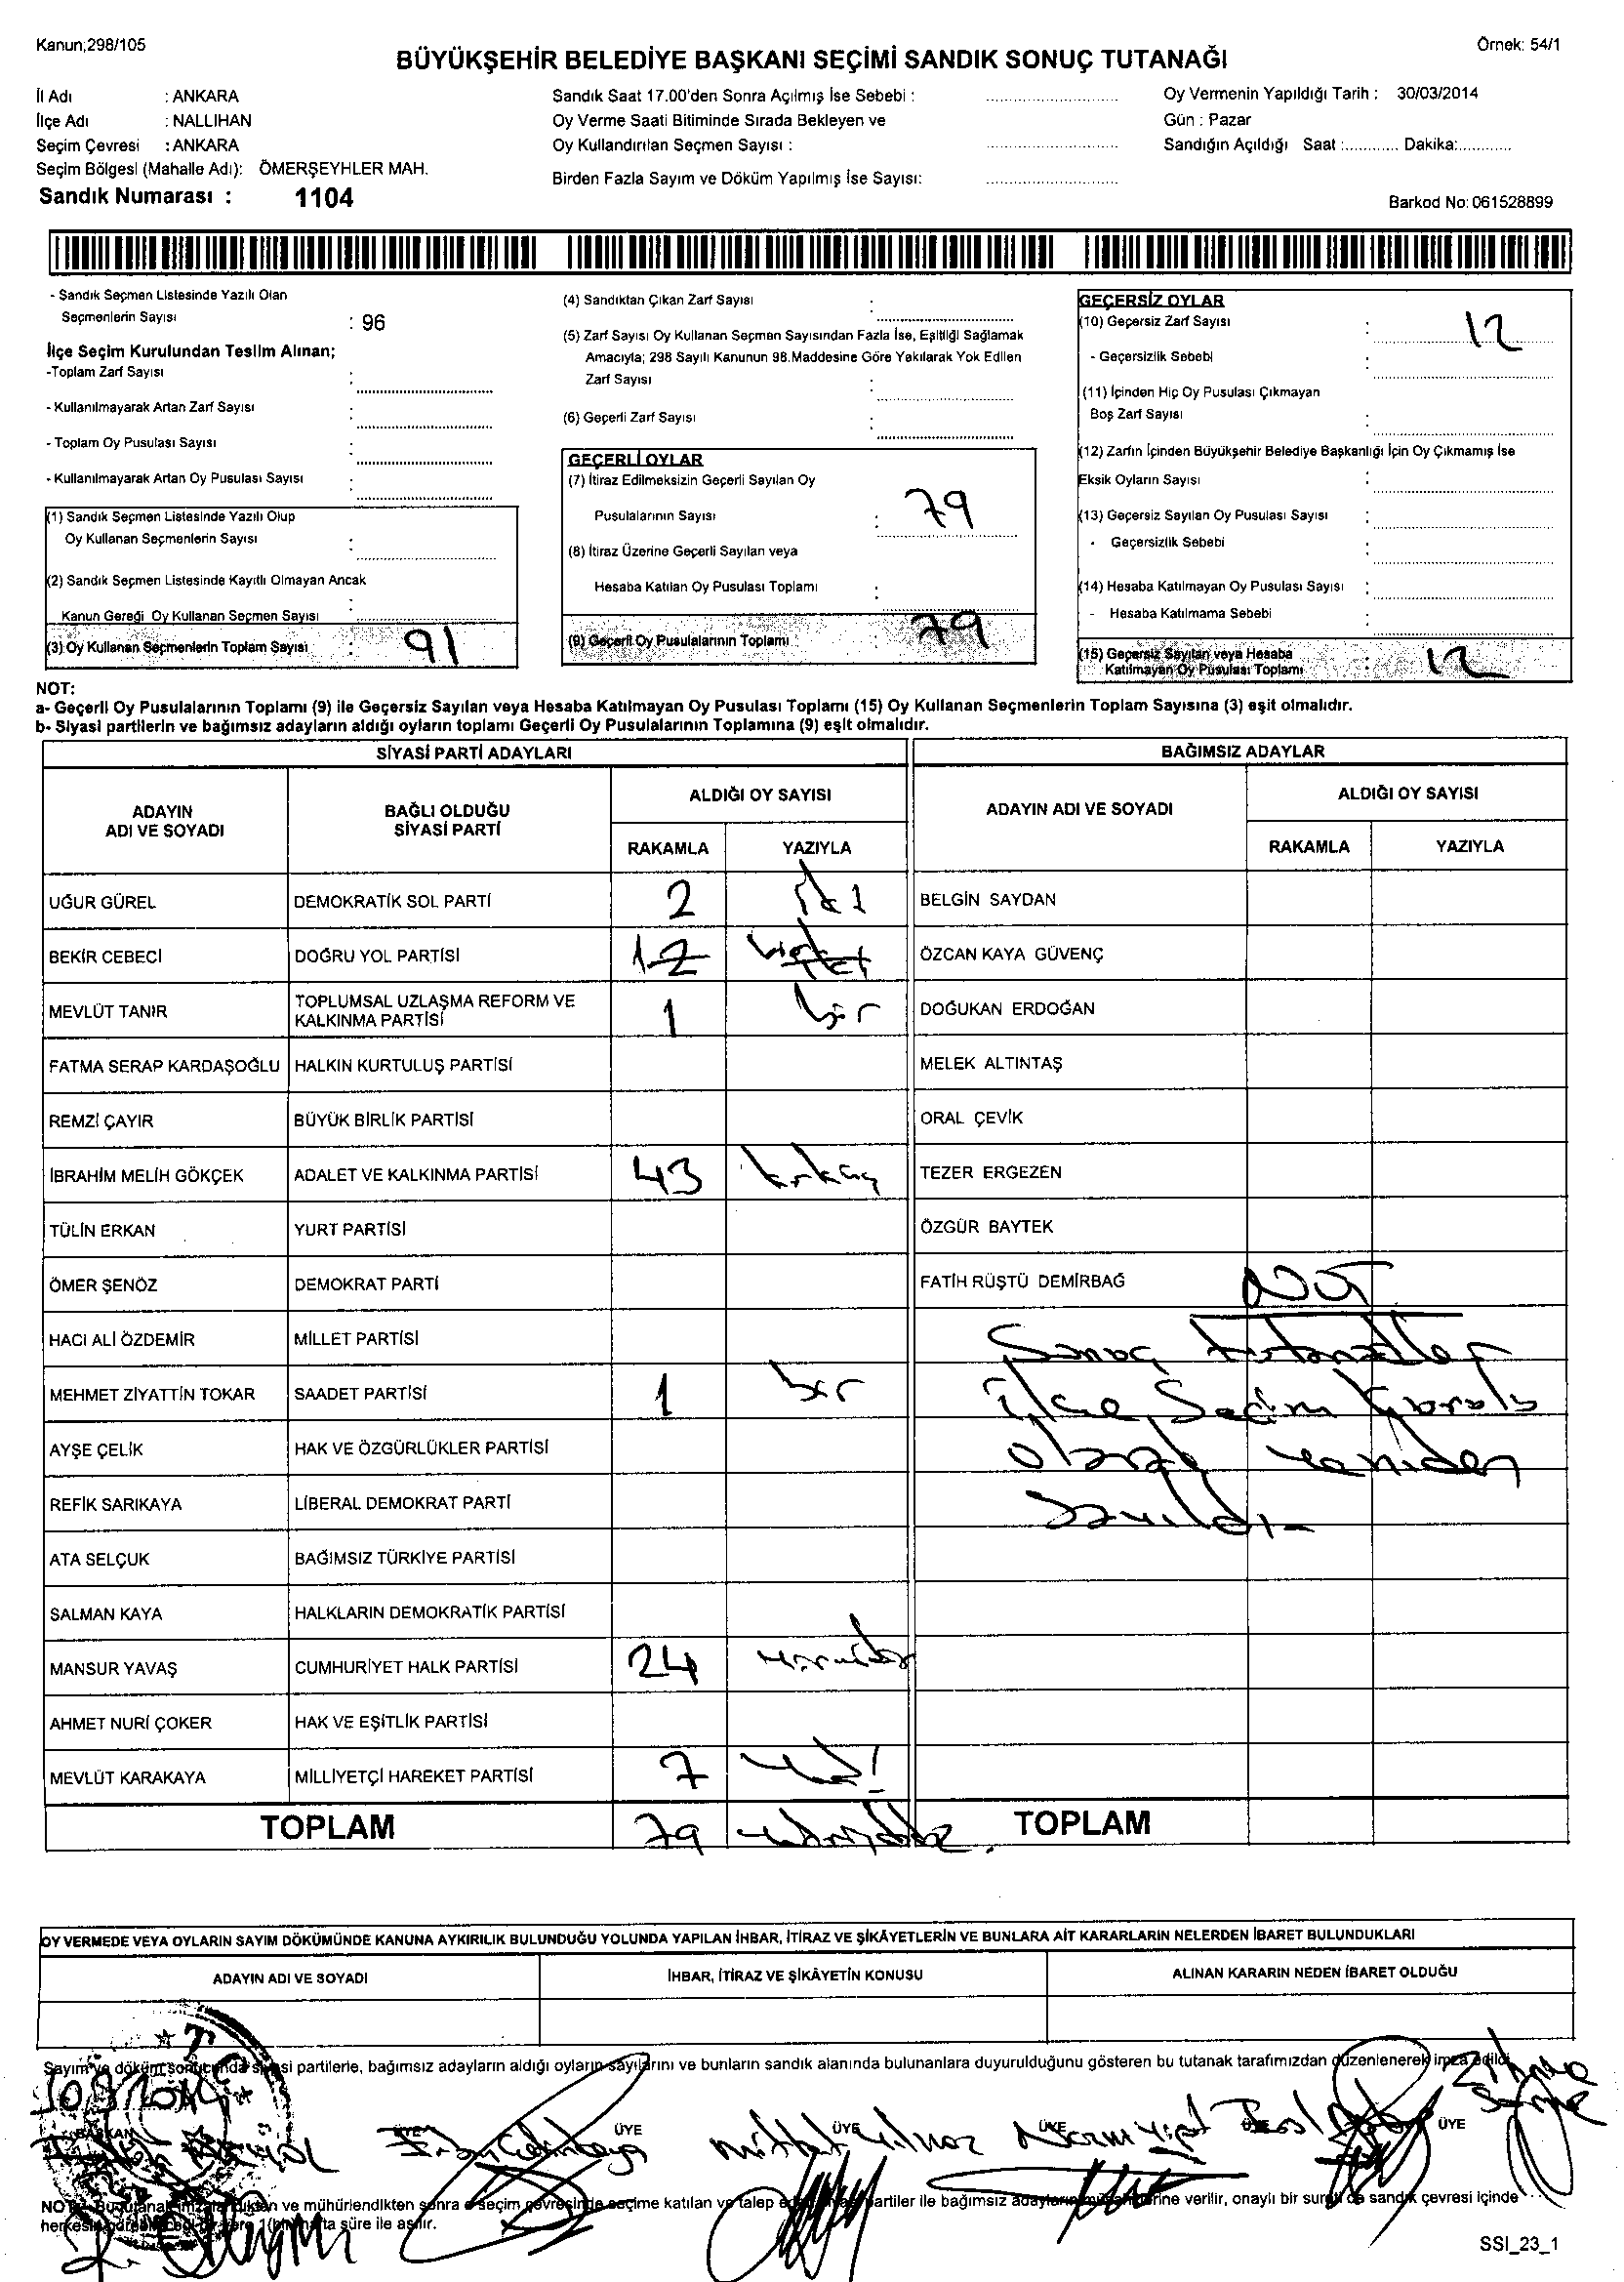 Kanun;298/105
Örnek: 54/1
BÜYÜKŞEHİR BELEDİYE BAŞKANI SEÇİMİ SANDIK SONUÇ TUTANAĞI
İl Adı : ANKARA
İlçe Adı : NALLIHAN
Seçim Çevresi : ANKARA
Seçim Bölgesi (Mahalle Adı): ÖMERŞEYHLER MAH.
Sandık Numarası : 1104
Sandık Saat 17.00'den Sonra Açılmış İse Sebebi :
Oy Verme Saati Bitiminde Sırada Bekleyen ve
Oy Kullandırılan Seçmen Sayısı :
Birden Fazla Sayım ve Döküm Yapılmış İse Sayısı:
Oy Vermenin Yapıldığı Tarih : 30/03/2014
Gün : Pazar
Sandığın Açıldığı Saat :............ Dakika:............
Barkod No: 061528899
- Sandık Seçmen Listesinde Yazılı Olan
Seçmenlerin Sayısı : 96
İlçe Seçim Kurulundan Teslim Alınan;
-Toplam Zarf Sayısı :
- Kullanılmayarak Artan Zarf Sayısı :
- Toplam Oy Pusulası Sayısı :
- Kullanılmayarak Artan Oy Pusulası Sayısı :
(1) Sandık Seçmen Listesinde Yazılı Olup
Oy Kullanan Seçmenlerin Sayısı :
(2) Sandık Seçmen Listesinde Kayıtlı Olmayan Ancak
Kanun Gereği Oy Kullanan Seçmen Sayısı :
(3) Oy Kullanan Seçmenlerin Toplam Sayısı : 91
(4) Sandıktan Çıkan Zarf Sayısı :
(5) Zarf Sayısı Oy Kullanan Seçmen Sayısından Fazla İse, Eşitliği Sağlamak
Amacıyla; 298 Sayılı Kanunun 98.Maddesine Göre Yakılarak Yok Edilen
Zarf Sayısı :
(6) Geçerli Zarf Sayısı :
GEÇERLİ OYLAR
(7) İtiraz Edilmeksizin Geçerli Sayılan Oy
Pusulalarının Sayısı : 79
(8) İtiraz Üzerine Geçerli Sayılan veya
Hesaba Katılan Oy Pusulası Toplamı :
(9) Geçerli Oy Pusulalarının Toplamı : 79
GEÇERSİZ OYLAR
(10) Geçersiz Zarf Sayısı : 12
- Geçersizlik Sebebi :
(11) İçinden Hiç Oy Pusulası Çıkmayan
Boş Zarf Sayısı :
(12) Zarfın İçinden Büyükşehir Belediye Başkanlığı İçin Oy Çıkmamış İse
Eksik Oyların Sayısı :
(13) Geçersiz Sayılan Oy Pusulası Sayısı :
- Geçersizlik Sebebi :
(14) Hesaba Katılmayan Oy Pusulası Sayısı :
- Hesaba Katılmama Sebebi :
(15) Geçersiz Sayılan veya Hesaba
Katılmayan Oy Pusulası Toplamı : 12
NOT:
a- Geçerli Oy Pusulalarının Toplamı (9) ile Geçersiz Sayılan veya Hesaba Katılmayan Oy Pusulası Toplamı (15) Oy Kullanan Seçmenlerin Toplam Sayısına (3) eşit olmalıdır.
b- Siyasi partilerin ve bağımsız adayların aldığı oyların toplamı Geçerli Oy Pusulalarının Toplamına (9) eşit olmalıdır.
SİYASİ PARTİ ADAYLARI
ADAYIN ADI VE SOYADI BAĞLI OLDUĞU SİYASİ PARTİ ALDIĞI OY SAYISI
RAKAMLA YAZIYLA
UĞUR GÜREL DEMOKRATİK SOL PARTİ 2 iki
BEKİR CEBECİ DOĞRU YOL PARTİSİ 1
MEVLÜT TANIR TOPLUMSAL UZLAŞMA REFORM VE KALKINMA PARTİSİ 1 bir
FATMA SERAP KARDAŞOĞLU HALKIN KURTULUŞ PARTİSİ
REMZİ ÇAYIR BÜYÜK BİRLİK PARTİSİ
İBRAHİM MELİH GÖKÇEK ADALET VE KALKINMA PARTİSİ 43 kırküç
TÜLİN ERKAN YURT PARTİSİ
ÖMER ŞENÖZ DEMOKRAT PARTİ
HACI ALİ ÖZDEMİR MİLLET PARTİSİ
MEHMET ZİYATTİN TOKAR SAADET PARTİSİ 1 bir
AYŞE ÇELİK HAK VE ÖZGÜRLÜKLER PARTİSİ
REFİK SARIKAYA LİBERAL DEMOKRAT PARTİ
ATA SELÇUK BAĞIMSIZ TÜRKİYE PARTİSİ
SALMAN KAYA HALKLARIN DEMOKRATİK PARTİSİ
MANSUR YAVAŞ CUMHURİYET HALK PARTİSİ 24 yirmidört
AHMET NURİ ÇOKER HAK VE EŞİTLİK PARTİSİ
MEVLÜT KARAKAYA MİLLİYETÇİ HAREKET PARTİSİ 7 yedi
TOPLAM 79 yetmişdokuz
BAĞIMSIZ ADAYLAR
ADAYIN ADI VE SOYADI ALDIĞI OY SAYISI
RAKAMLA YAZIYLA
BELGİN SAYDAN
ÖZCAN KAYA GÜVENÇ
DOĞUKAN ERDOĞAN
MELEK ALTINTAŞ
ORAL ÇEVİK
TEZER ERGEZEN
ÖZGÜR BAYTEK
FATİH RÜŞTÜ DEMİRBAĞ
NOT
Sonuç tutanakları
İlçe Seçim Kurulu
olarak yeniden
sayıldı
TOPLAM
OY VERMEDE VEYA OYLARIN SAYIM DÖKÜMÜNDE KANUNA AYKIRILIK BULUNDUĞU YOLUNDA YAPILAN İHBAR, İTİRAZ VE ŞİKÂYETLERİN VE BUNLARA AİT KARARLARIN NELERDEN İBARET BULUNDUKLARI
ADAYIN ADI VE SOYADI İHBAR, İTİRAZ VE ŞİKÂYETİN KONUSU ALINAN KARARIN NEDEN İBARET OLDUĞU
Sayım ve döküm sonucunda siyasi partilerle, bağımsız adayların aldığı oyların sayılarını ve bunların sandık alanında bulunanlara duyurulduğunu gösteren bu tutanak tarafımızdan düzenlenerek imza edildi.
BAŞKAN ÜYE ÜYE ÜYE ÜYE ÜYE
ve mühürlendikten sonra seçim çevresinde seçime katılan ve talep partiler ile bağımsız adayların verilir, onaylı bir sureti de sandık çevresi içinde
hafta süre ile asılır.
SSI_23_1